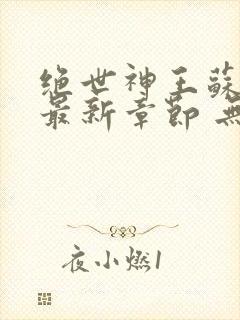 绝世神王蘇
最新章節 無
夜小燃1